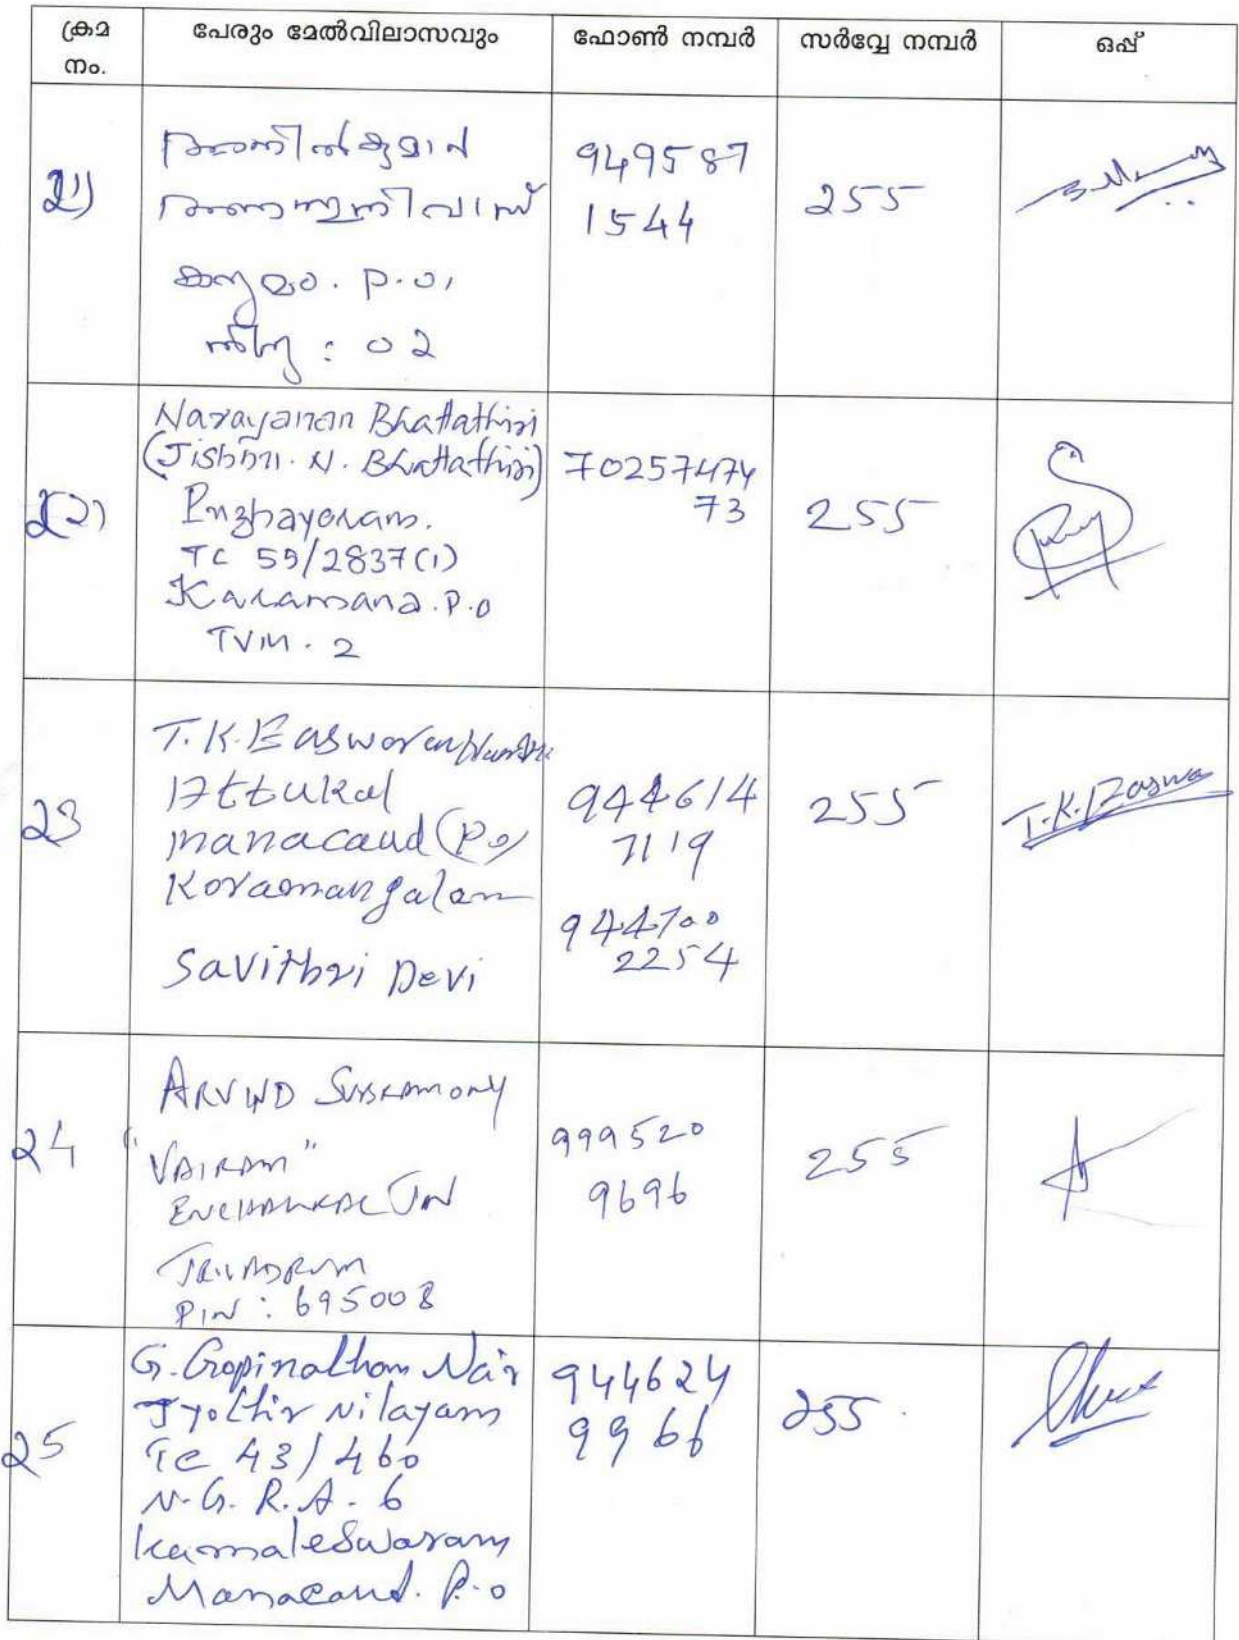 ക്രമ നം. പേരും മേൽവിലാസവും ഫോൺ നമ്പർ സർവ്വേ നമ്പർ ഒപ്പ്
21)
അനിൽകുമാർ
949587
1544
255
P.O,
: 02
22)
Narayanan Bhattathiri
(Jishnu. N. Bhattathiri)
Puzhayoram.
TC 59/2837(1)
Karamana. P.O
TVM. 2
70257474
73
255
23
T.K. Easwaran
Attukal
Manacaud (P.O)
Koramangalam
Savithri Devi
944614
7119
944700
2254
255
T.K. Easwa
24
ARVIND SUBRAMONY
"VAIRAM"
ENCHAKKAL JN
TRIVANDRUM
PIN : 695008
999520
9696
255
25
G. Gopinathan Nair
Jyothir Nilayam
TC 43/460
N.G.R.A. 6
Kamaleswaram
Manacaud. P.O
944624
9966
255.